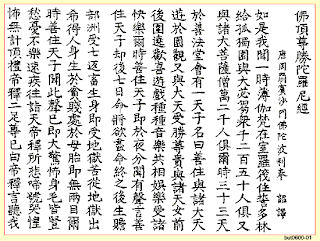 佛頂尊勝陀羅尼經
唐罽賓沙門佛陀波利奉 詔譯
如是我聞一時薄伽梵在室羅筏住誓多林
給孤獨園與大苾芻眾千二百五十人俱又
與諸大菩薩僧萬二千人俱爾時三十三天
於善法堂會有一天子名曰善住與諸大天
遊於園觀又與大天受勝尊貴與諸天女前
後圍遶歡喜遊戲種種音樂共相娛樂受諸
快樂爾時善住天子即於夜分聞有聲言善
住天子却後七日命將欲盡命終之後生贍
部洲受七返畜生身即受地獄苦從地獄出
希得人身生於貧賤處於母胎即無兩目爾
時善住天子聞此聲已即大驚怖身毛皆豎
愁憂不樂速疾往詣天帝釋所悲啼號哭惶
怖無計頂禮帝釋二足尊已白帝釋言聽我
but0600-01